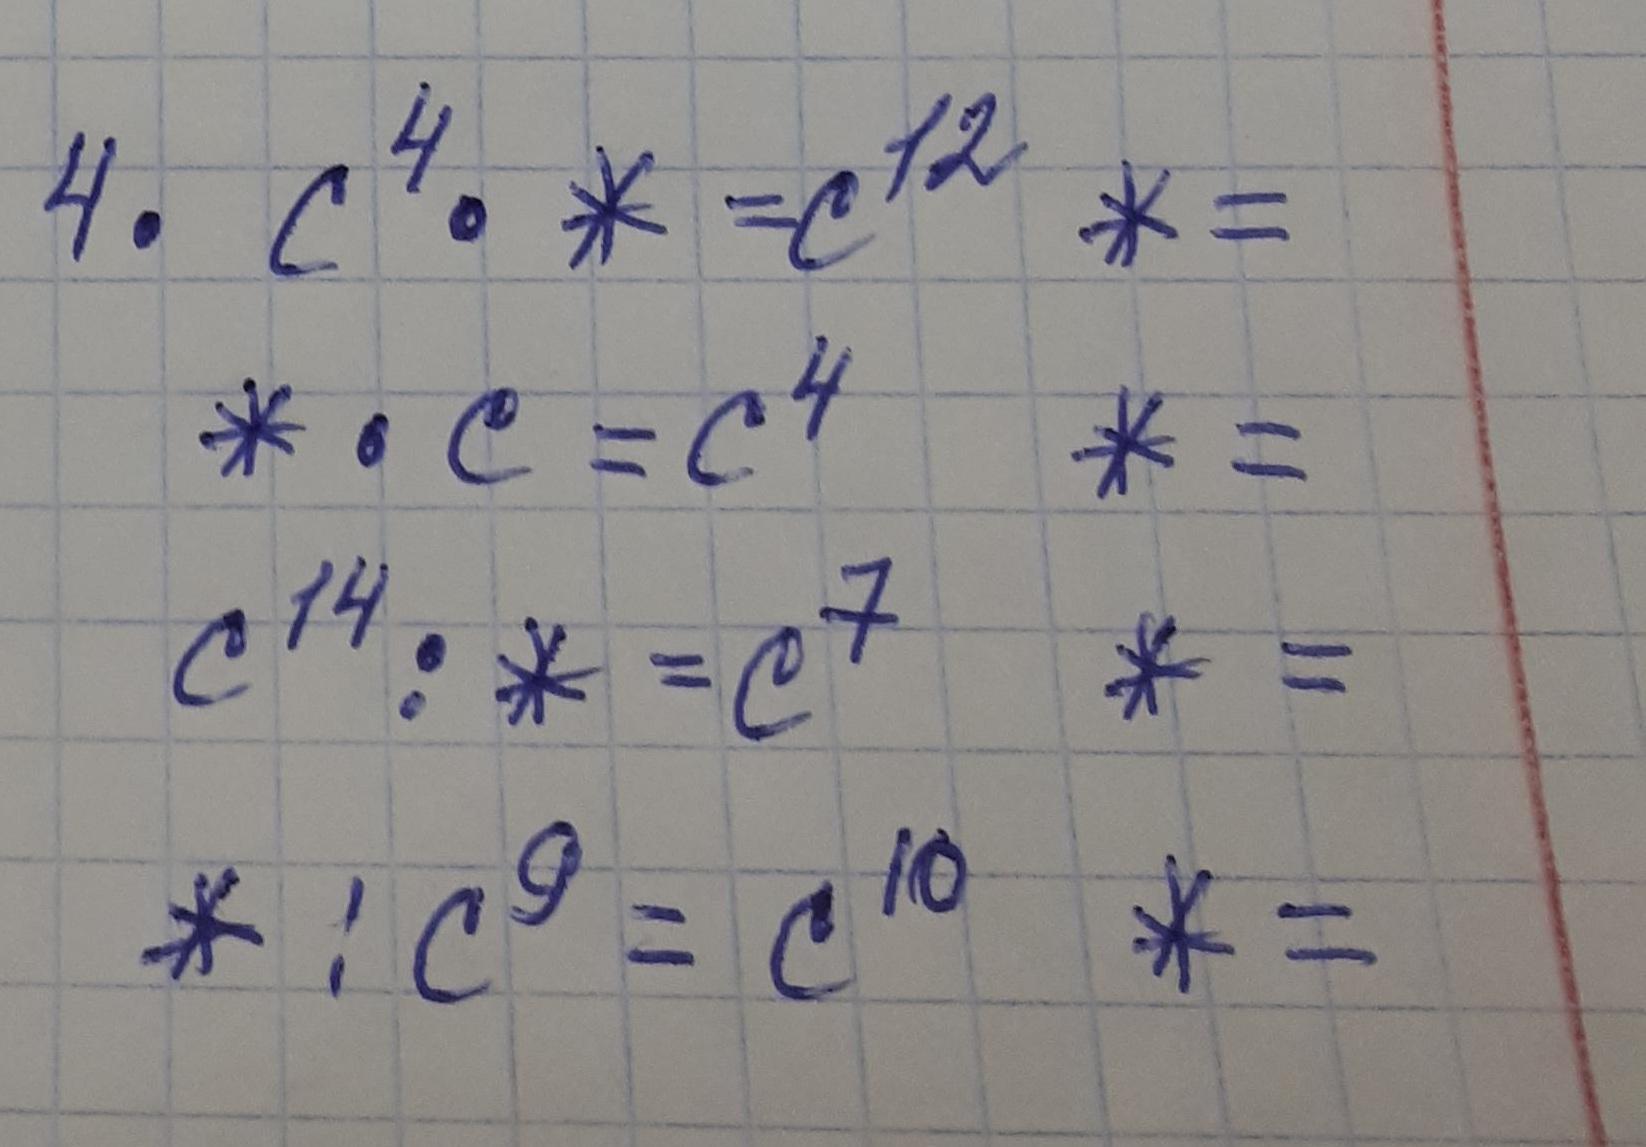 4. c⁴ · * = c¹² * =
* · c = c⁴ * =
c¹⁴ : * = c⁷ * =
* : c⁹ = c¹⁰ * =